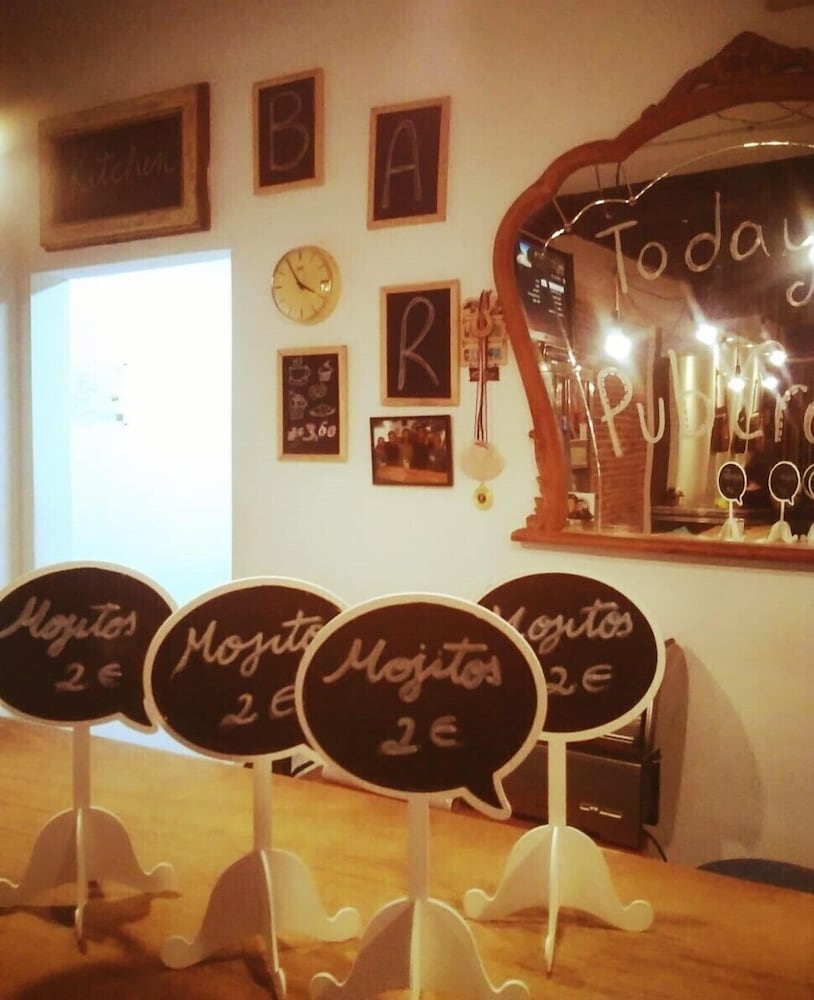 Kitchen
B
A
R
3,60
Today
Mojitos
2 €
Mojitos
2 €
Mojitos
2 €
Mojitos
2 €